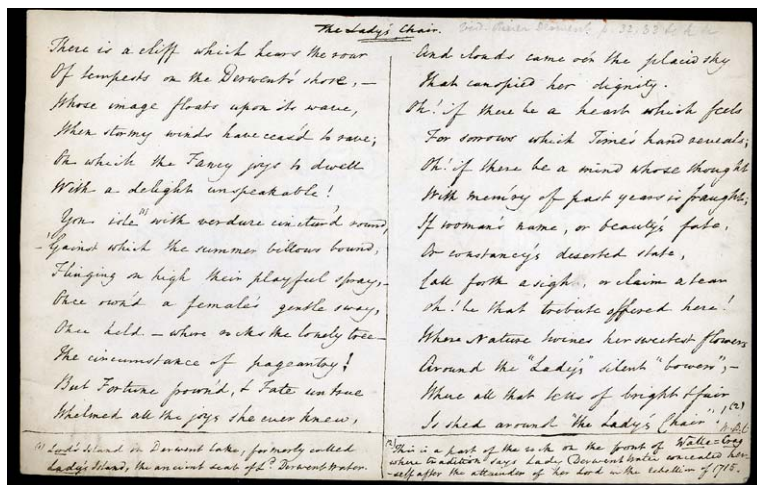 The Lady's Chair.
There is a cliff which hears the roar
Of tempests on the Derwent's shore, —
Whose image floats upon its wave,
When stormy winds have ceas'd to rave;
On which the Fancy joys to dwell
With a delight unspeakable!
Yon isle (1) with verdure cinctur'd round,
'Gainst which the summer billows bound,
Flinging on high their playful spray, —
Once own'd a female's gentle sway,
Once held — where rocks the lonely tree —
The circumstance of pageantry!
But Fortune frown'd, & Fate untrue
Whelmed all the joys she ever knew,
(1) Lord's Island in Derwent Lake, formerly called
Lady's Island, the ancient seat of Ld. Derwentwater.
And clouds came o'er the placid sky
That canopied her dignity.
Oh! if there be a heart which feels
For sorrows which Time's hand reveals;
Oh! if there be a mind whose thought
With mem'ry of past years is fraught;
If woman's name, or beauty's fate,
Or constancy's deserted state,
Call forth a sigh, or claim a tear
Oh! be that tribute offered here!
Where Nature twines her sweetest flowers
Around the "Lady's" silent "bowers"; —
Where all that tells of bright & fair
Is shed around "the Lady's Chair"! (2)
(2) This is a part of the rock on the front of Walla=Crag
where tradition says Lady Derwentwater concealed her-
-self after the attainder of her Lord in the rebellion of 1715.